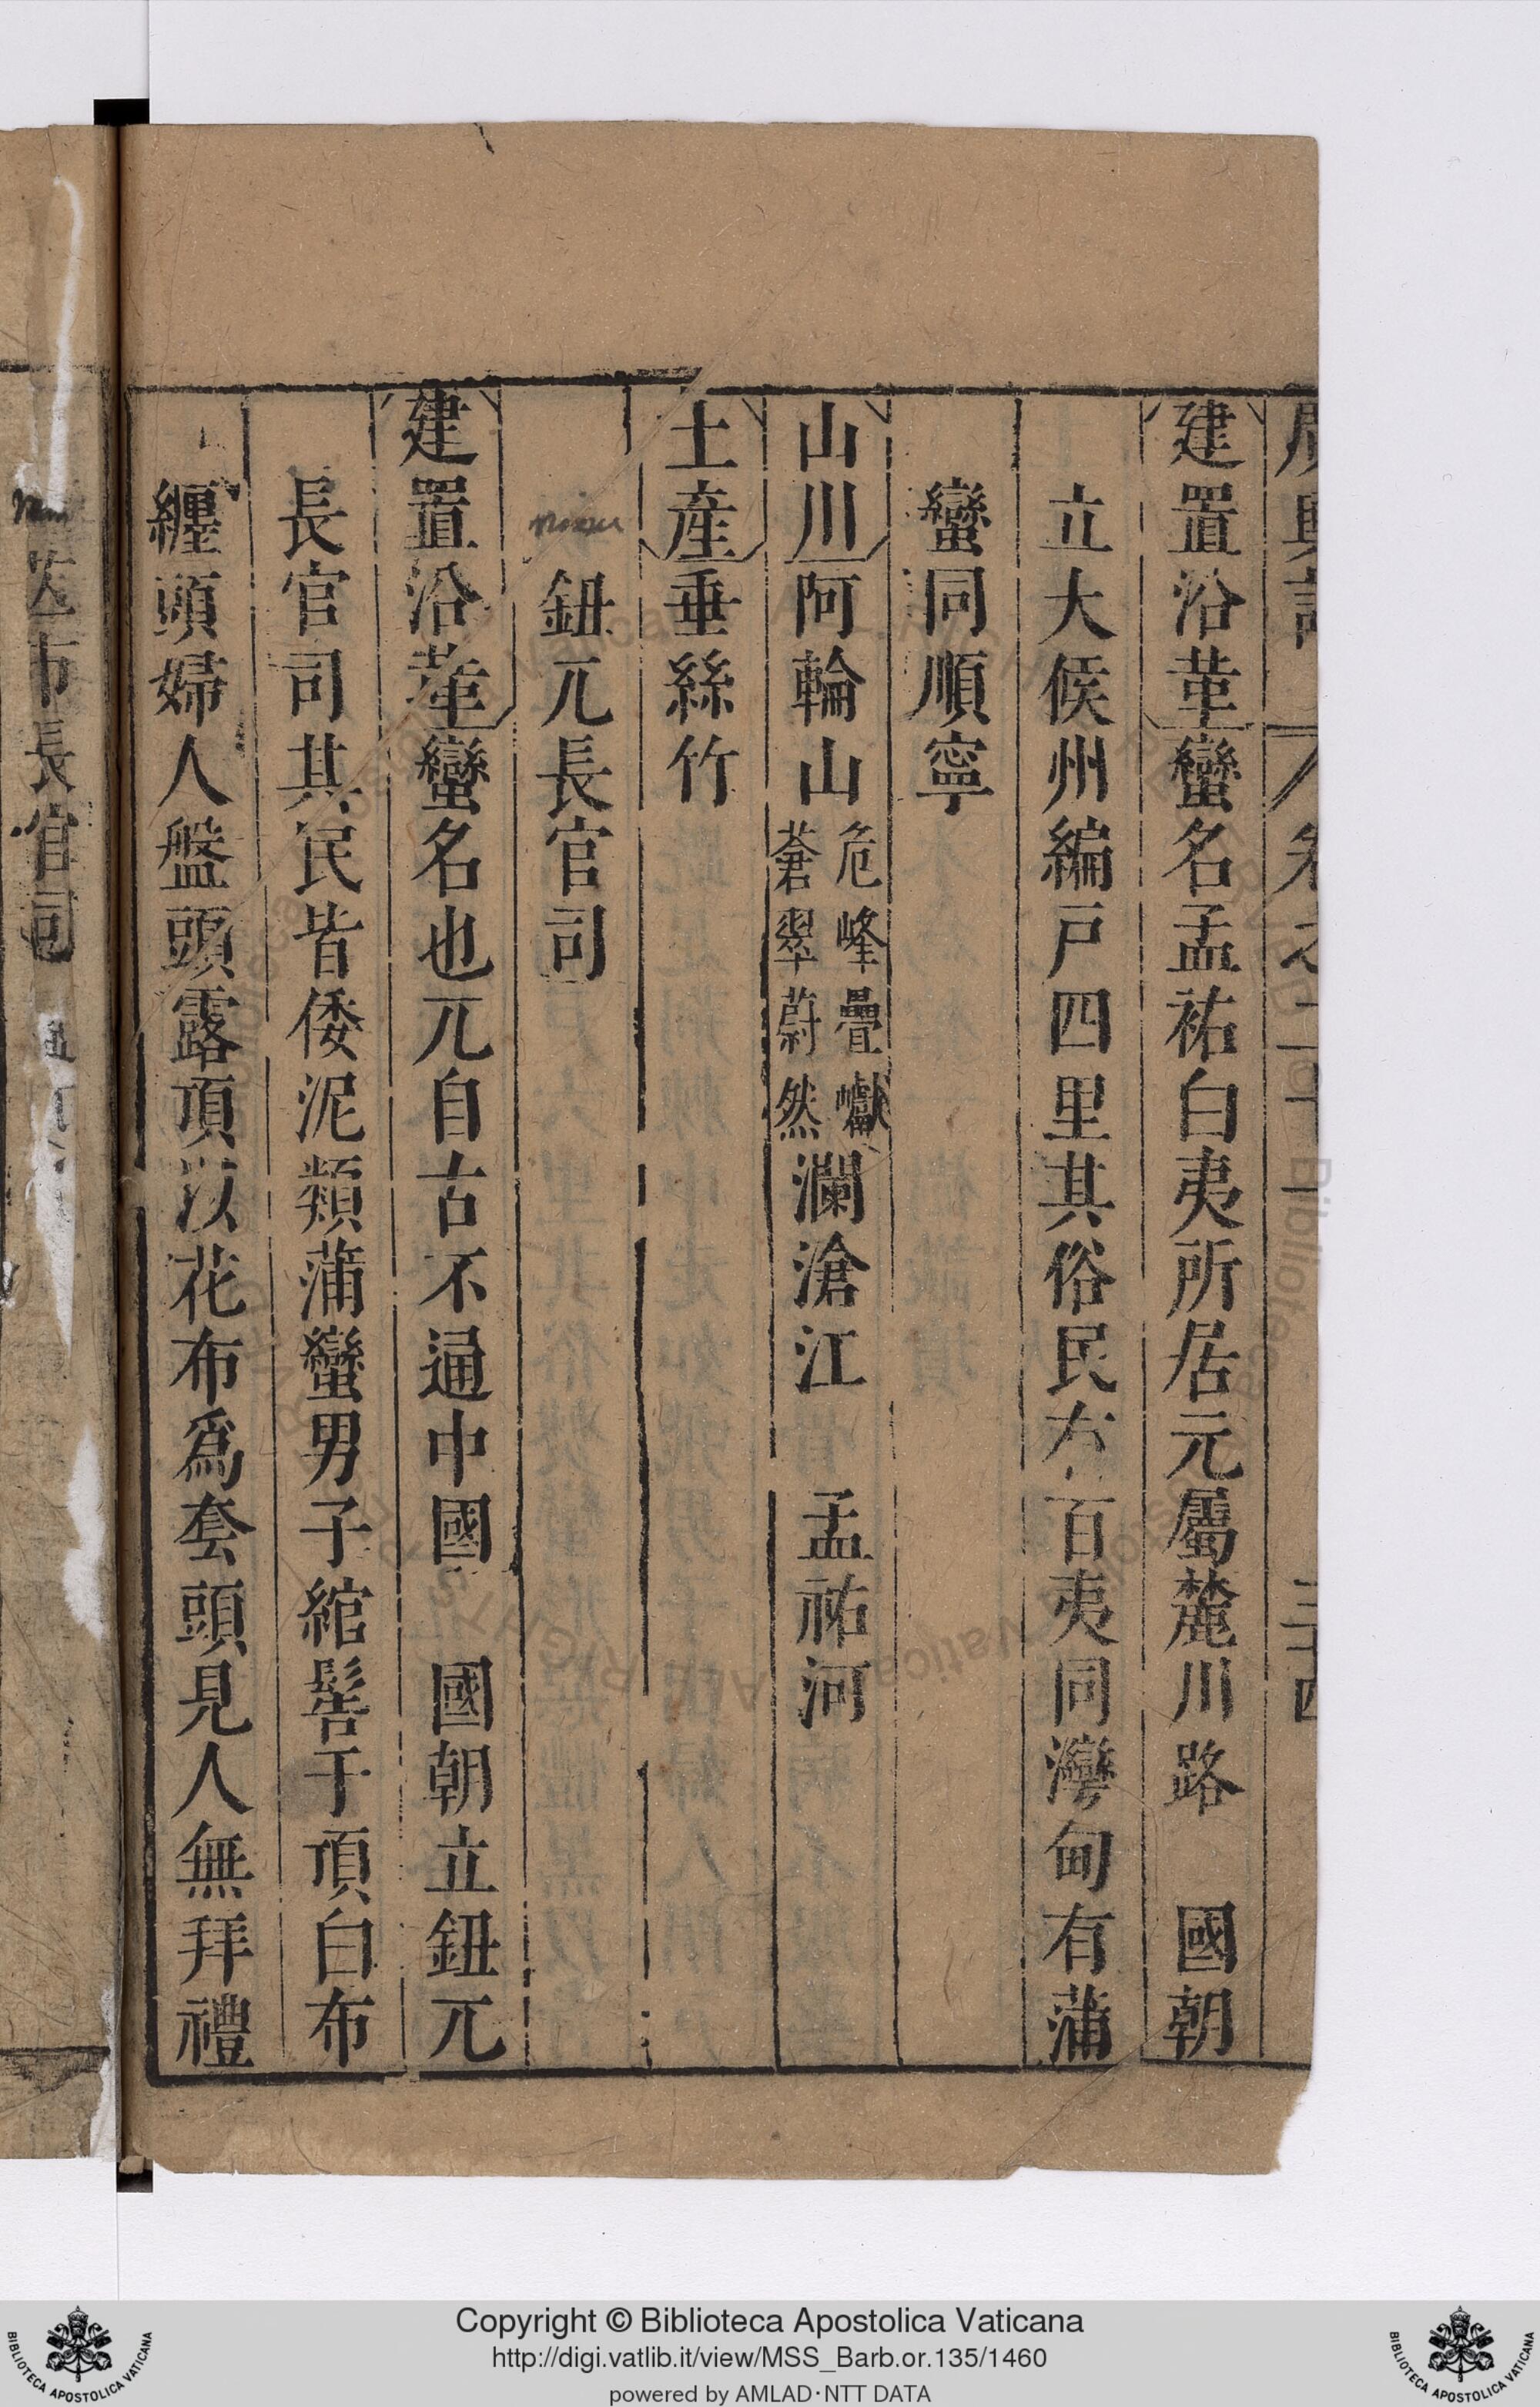 建置沿革蠻名孟祐白夷所居元屬麓川路　國朝
立大候州編戸四里其俗民有百夷同灣甸有蒲
蠻同順寧
山川阿輪山危峰疊巘蒼翠蔚然瀾滄江　孟祐河
土産垂絲竹
鈕兀長官司
建置沿革蠻名也兀自古不通中國　國朝立鈕兀
長官司其民皆倭泥類蒲蠻男子綰髻于頂白布
纏頭婦人盤頭露頂以花布爲套頭見人無拜禮
長官司
Copyright © Biblioteca Apostolica Vaticana
http://digi.vatlib.it/view/MSS_Barb.or.135/1460
powered by AMLAD·NTT DATA
BIBLIOTECA APOSTOLICA VATICANA
BIBLIOTECA APOSTOLICA VATICANA